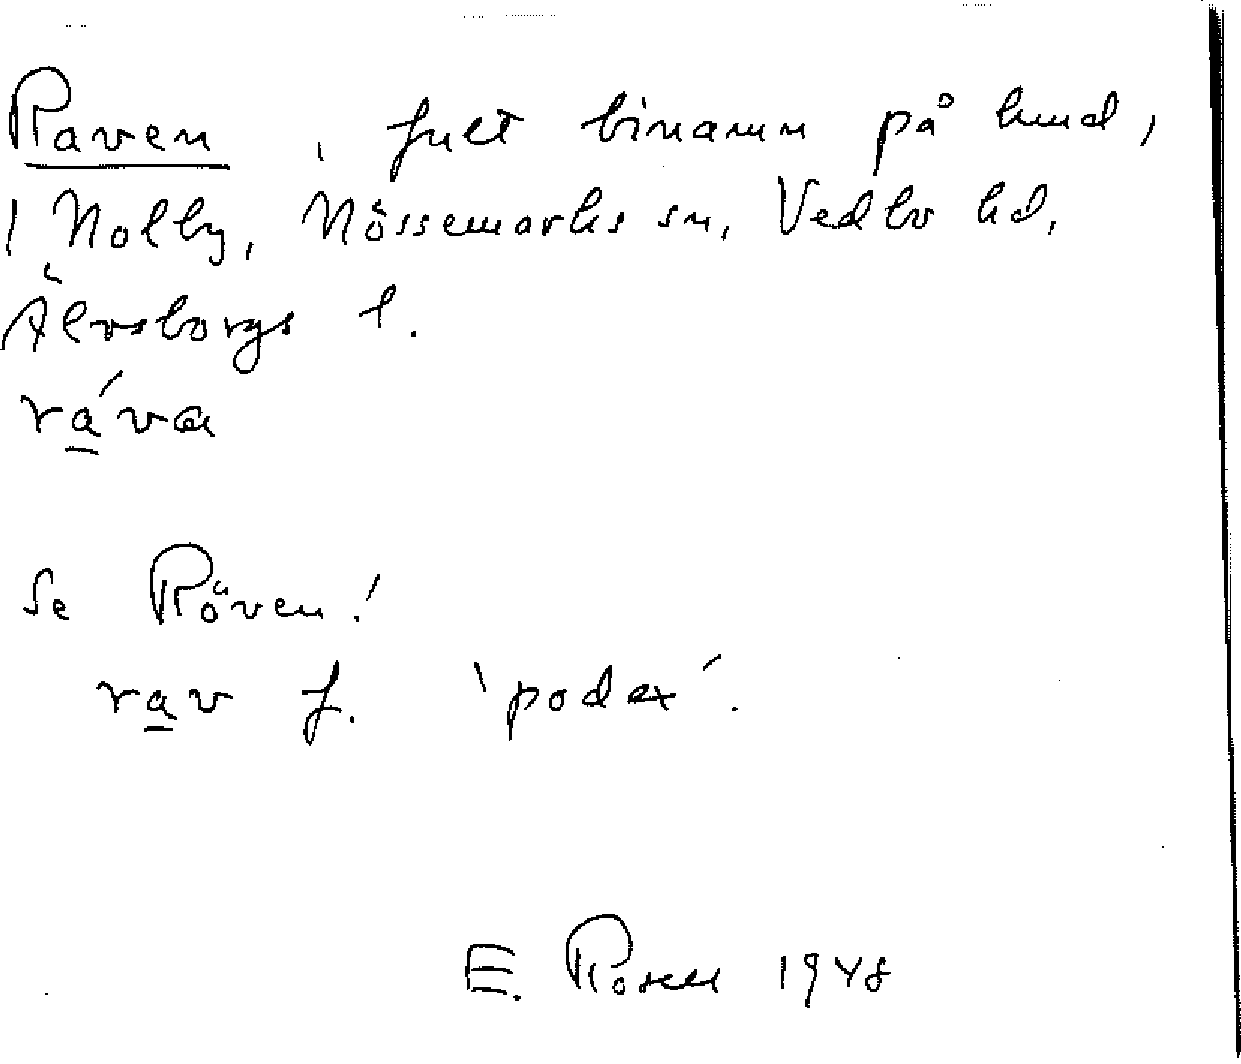 Raven, fult binamn på hund,
i Nolby, Nössemarks sn, Vedbo hd,
Älvsborgs l.
rá̱va
Se Röven!
ra̱v f. 'podex'.
E. Rosell 1948